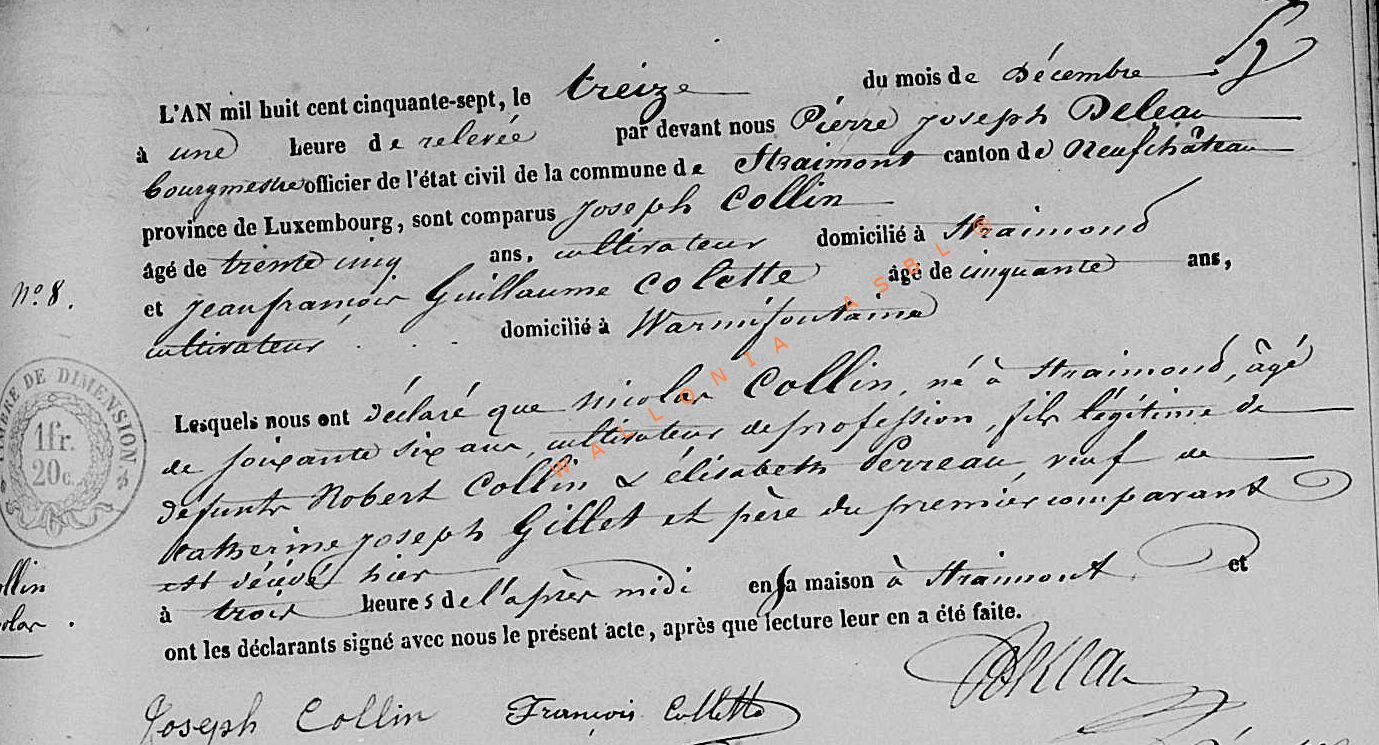 L'AN mil huit cent cinquante-sept, le treize du mois de Décembre
à une heure de relevée par devant nous Pierre Joseph Deleau
bourgmestre officier de l'état civil de la commune de Straimont canton de Neufchâteau
province de Luxembourg, sont comparus Joseph Collin
âgé de trente cinq ans, cultivateur domicilié à Straimond
N° 8.
et Jean françois Guillaume Colette âgé de cinquante ans,
cultivateur domicilié à Warmifontaine
Lesquels nous ont déclaré que nicolas Collin, né à Straimond, âgé
de soixante six ans, cultivateur de profession, fils légitime de
défunts Robert Collin & élisabeth Perreau, veuf de
Catherine Joseph Gillet et père du premier comparant
est décédé hier
à trois heures de l'après midi en sa maison à Straimont et
ont les déclarants signé avec nous le présent acte, après que lecture leur en a été faite.
Joseph Collin François Collette Deleau
TIMBRE DE DIMENSION
1fr.
20c.
ollin
olas.
WALLONIA ASBL